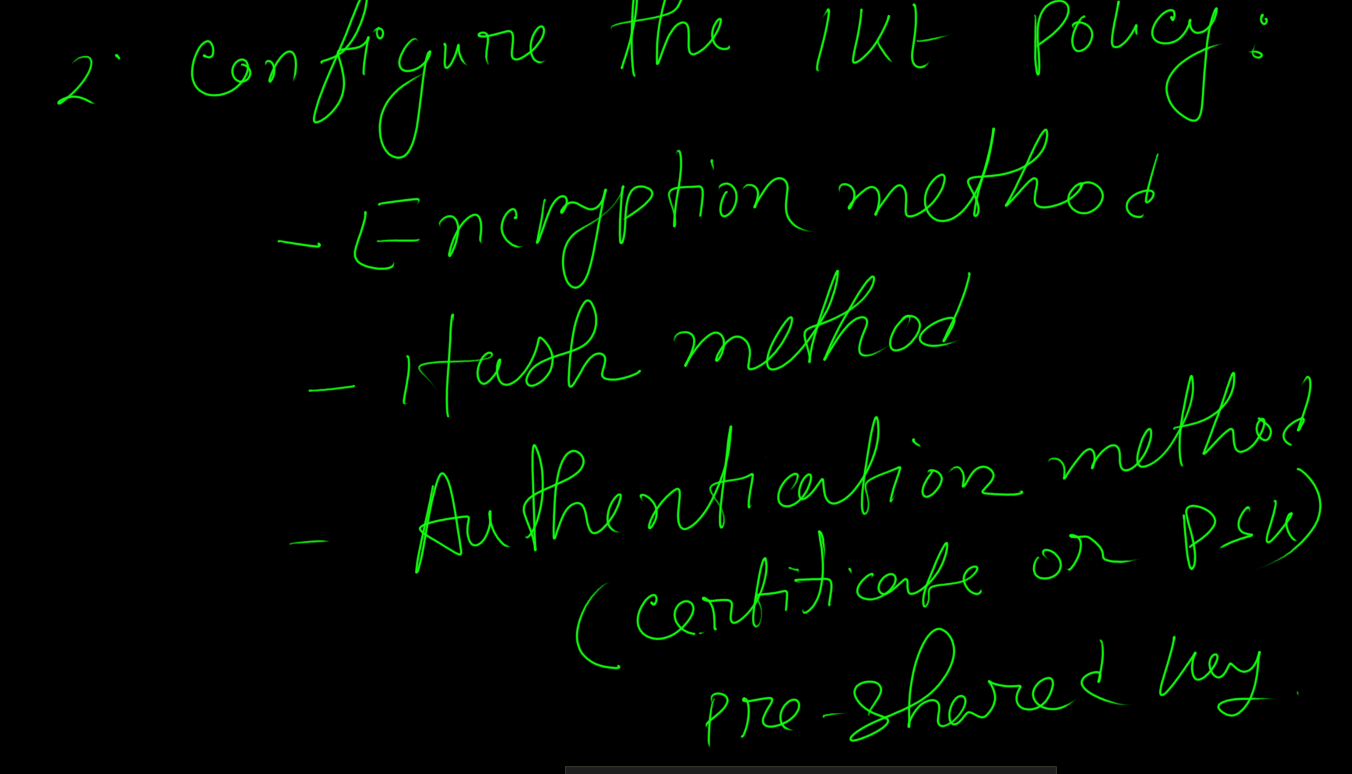 2. Configure the IKE Policy:
- Encryption method
- Hash method
- Authentication method
(certificate or PSK)
Pre-shared key.